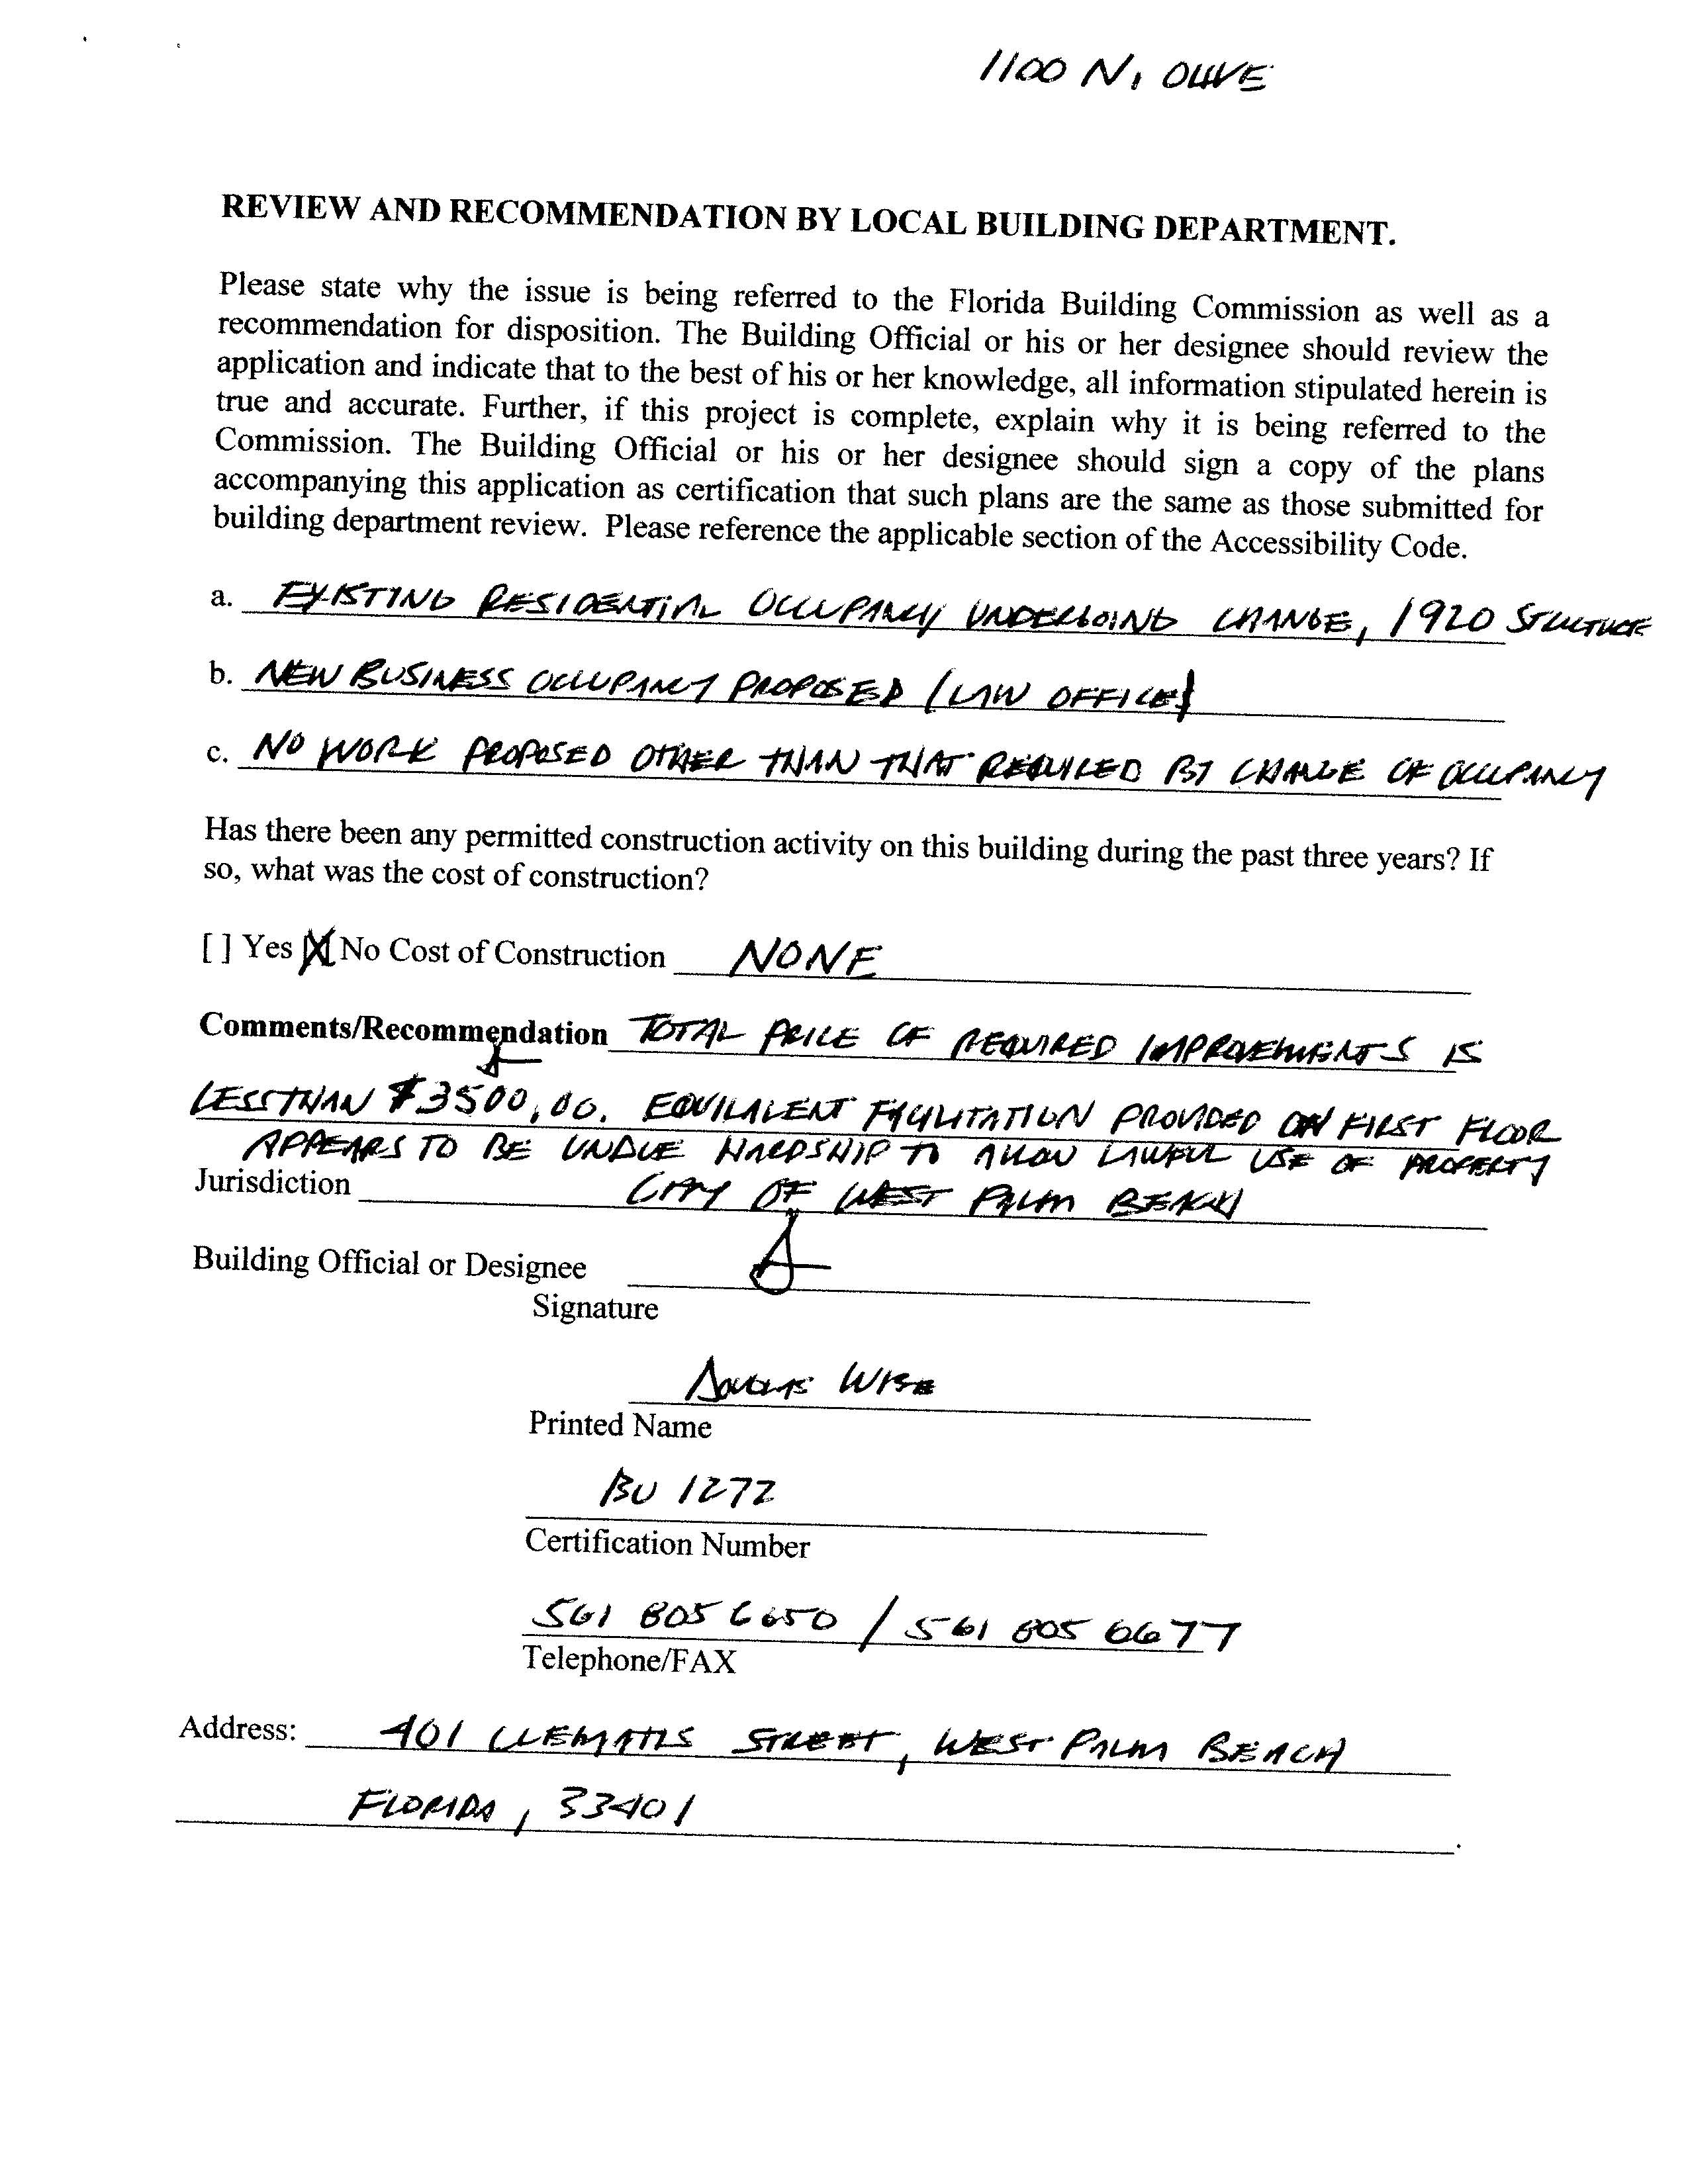 1100 N. OLIVE
REVIEW AND RECOMMENDATION BY LOCAL BUILDING DEPARTMENT.
Please state why the issue is being referred to the Florida Building Commission as well as a
recommendation for disposition. The Building Official or his or her designee should review the
application and indicate that to the best of his or her knowledge, all information stipulated herein is
true and accurate. Further, if this project is complete, explain why it is being referred to the
Commission. The Building Official or his or her designee should sign a copy of the plans
accompanying this application as certification that such plans are the same as those submitted for
building department review. Please reference the applicable section of the Accessibility Code.
a. EXISTING RESIDENTIAL OCCUPANCY UNDERGOING CHANGE, 1920 STRUCTURE
b. NEW BUSINESS OCCUPANCY PROPOSED (LAW OFFICE)
c. NO WORK PROPOSED OTHER THAN THAT REQUIRED BY CHANGE OF OCCUPANCY
Has there been any permitted construction activity on this building during the past three years? If
so, what was the cost of construction?
[ ] Yes [X] No Cost of Construction NONE
Comments/Recommendation TOTAL PRICE OF REQUIRED IMPROVEMENTS IS
LESS THAN $3500.00. EQUIVALENT FACILITATION PROVIDED ON FIRST FLOOR
APPEARS TO BE UNDUE HARDSHIP TO ALLOW LAWFUL USE OF PROPERTY
Jurisdiction CITY OF WEST PALM BEACH
Building Official or Designee
Signature
DOUGLAS WISE
Printed Name
BU 1272
Certification Number
561 805 6650 / 561 805 6677
Telephone/FAX
Address: 401 CLEMATIS STREET, WEST PALM BEACH
FLORIDA, 33401